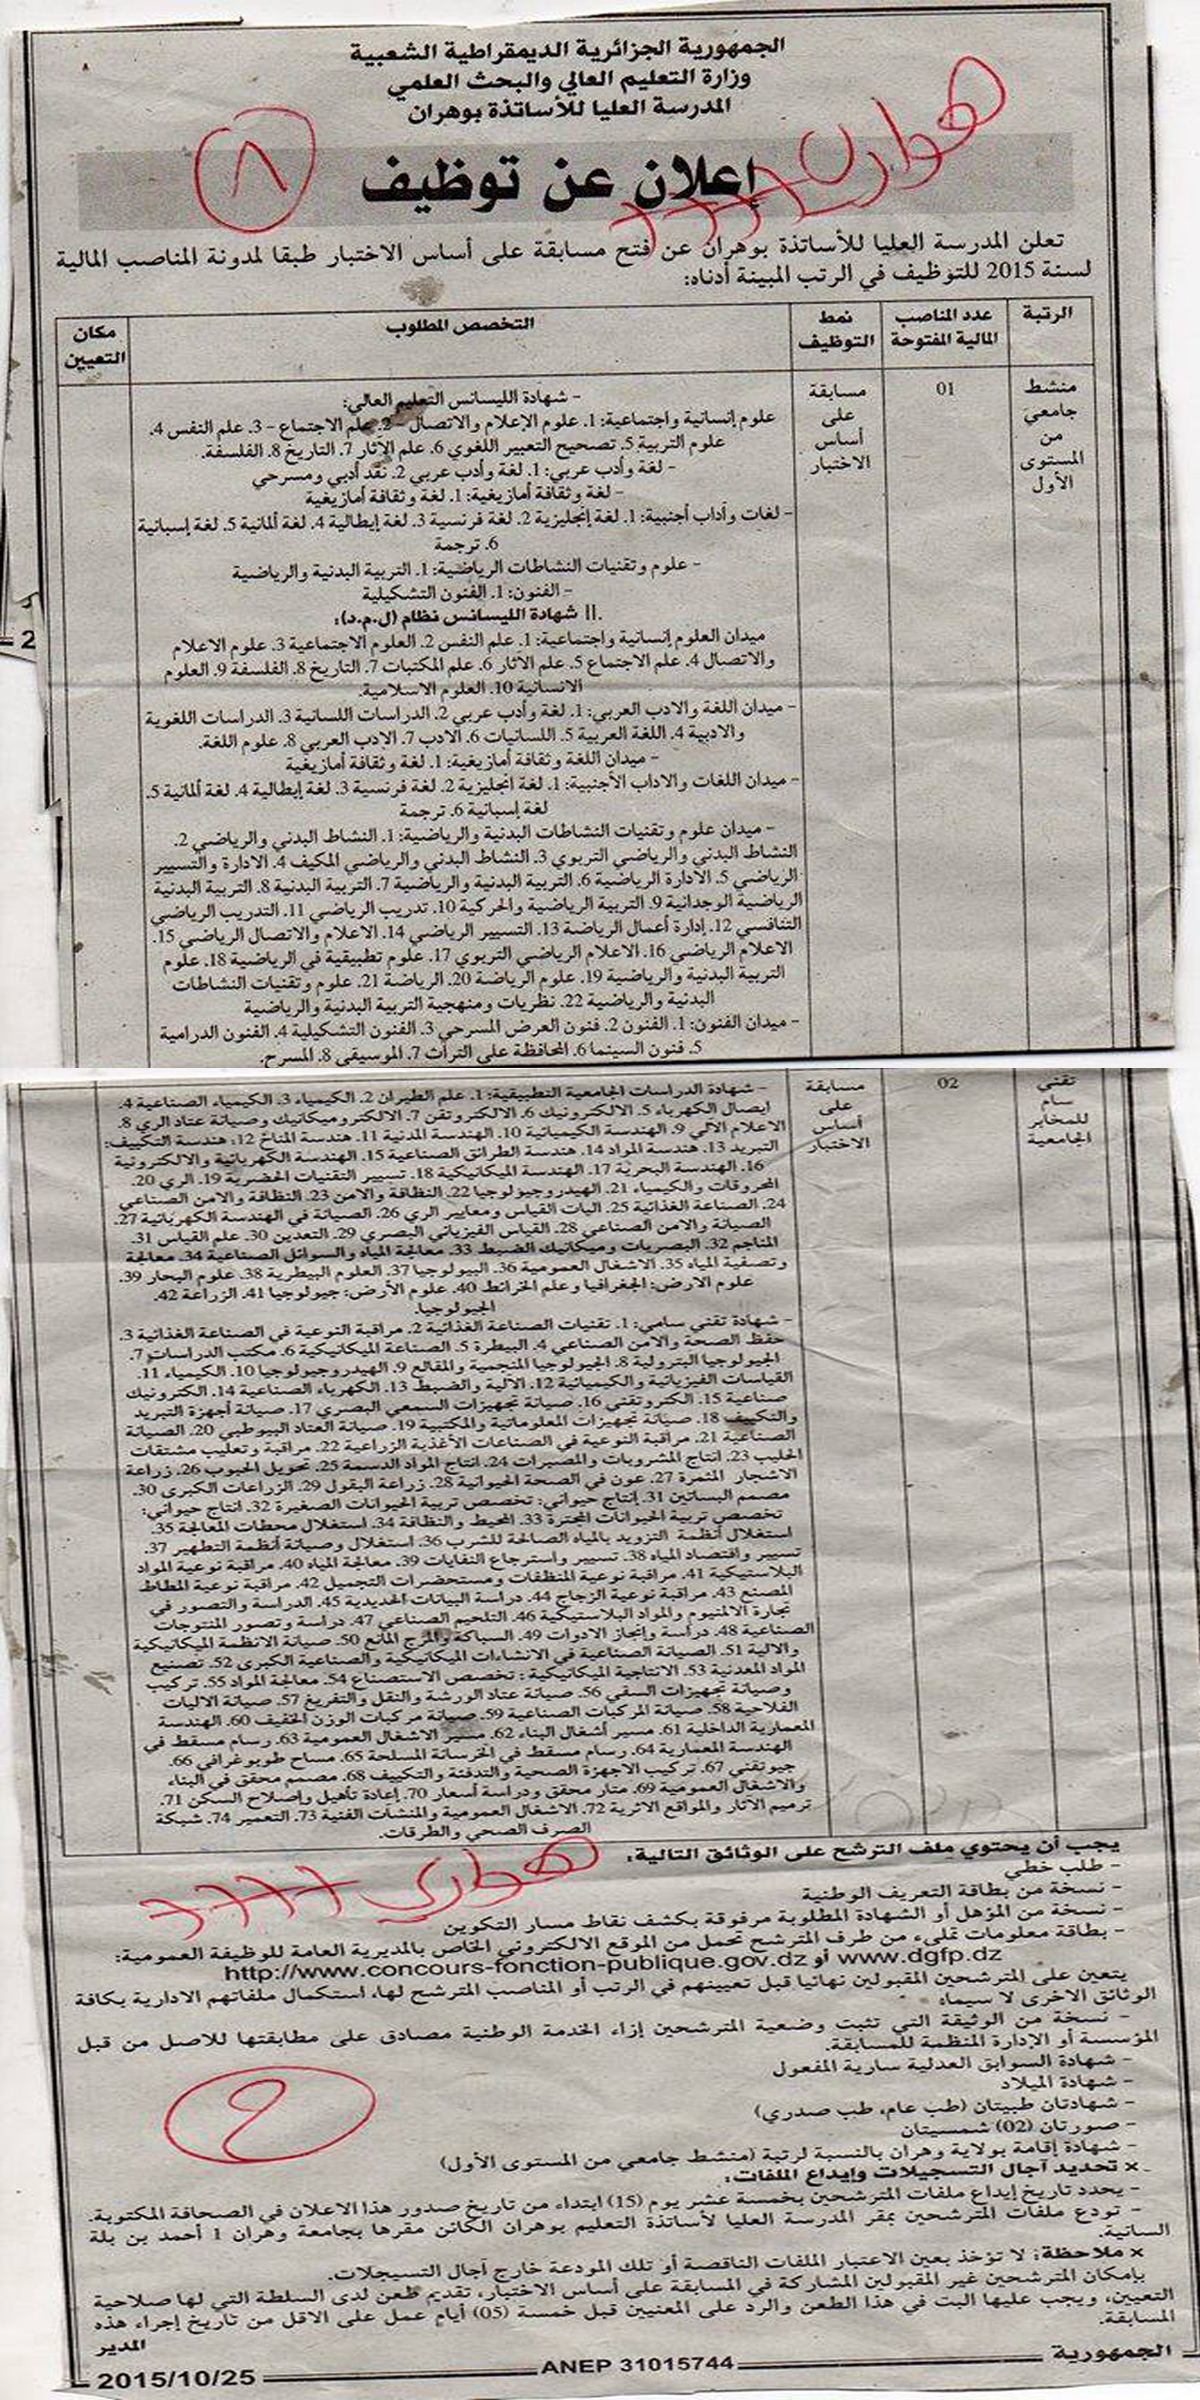 الجمهورية الجزائرية الديمقراطية الشعبية
وزارة التعليم العالي والبحث العلمي
المدرسة العليا للأساتذة بوهران
هواري
٨
إعلان عن توظيف
تعلن المدرسة العليا للأساتذة بوهران عن فتح مسابقة على أساس الاختبار طبقا لمدونة المناصب المالية
لسنة 2015 للتوظيف في الرتب المبينة أدناه:
الرتبة
عدد المناصب المالية المفتوحة
نمط التوظيف
التخصص المطلوب
مكان التعيين
منشط جامعي من المستوى الأول
01
مسابقة على أساس الاختبار
- شهادة الليسانس التعليم العالي:
علوم إنسانية واجتماعية: 1. علوم الإعلام والاتصال - 2. علم الاجتماع - 3. علم النفس 4.
علوم التربية 5. تصحيح التعبير اللغوي 6. علم الآثار 7. التاريخ 8. الفلسفة.
- لغة وأدب عربي: 1. لغة وأدب عربي 2. نقد أدبي ومسرحي
- لغة وثقافة أمازيغية: 1. لغة وثقافة أمازيغية
- لغات وأداب أجنبية: 1. لغة إنجليزية 2. لغة فرنسية 3. لغة إيطالية 4. لغة ألمانية 5. لغة إسبانية
6. ترجمة
- علوم وتقنيات النشاطات الرياضية: 1. التربية البدنية والرياضية
- الفنون: 1. الفنون التشكيلية
II. شهادة الليسانس نظام (ل.م.د):
ميدان العلوم إنسانية واجتماعية: 1. علم النفس 2. العلوم الاجتماعية 3. علوم الاعلام
والاتصال 4. علم الاجتماع 5. علم الآثار 6. علم المكتبات 7. التاريخ 8. الفلسفة 9. العلوم
الانسانية 10. العلوم الاسلامية.
- ميدان اللغة والادب العربي: 1. لغة وأدب عربي 2. الدراسات اللسانية 3. الدراسات اللغوية
والادبية 4. اللغة العربية 5. اللسانيات 6. الادب 7. الادب العربي 8. علوم اللغة.
- ميدان اللغة وثقافة أمازيغية: 1. لغة وثقافة أمازيغية
- ميدان اللغات والاداب الأجنبية: 1. لغة انجليزية 2. لغة فرنسية 3. لغة إيطالية 4. لغة ألمانية 5.
لغة إسبانية 6. ترجمة
- ميدان علوم وتقنيات النشاطات البدنية والرياضية: 1. النشاط البدني والرياضي 2.
النشاط البدني والرياضي التربوي 3. النشاط البدني والرياضي المكيف 4. الادارة والتسيير
الرياضي 5. الادارة الرياضية 6. التربية البدنية والرياضية 7. التربية البدنية 8. التربية البدنية
الرياضية الوجدانية 9. التربية الرياضية والحركية 10. تدريب الرياضي 11. التدريب الرياضي
التنافسي 12. إدارة أعمال الرياضة 13. التسيير الرياضي 14. الاعلام والاتصال الرياضي 15.
الاعلام الرياضي 16. الاعلام الرياضي التربوي 17. علوم تطبيقية في الرياضية 18. علوم
التربية البدنية والرياضية 19. علوم الرياضة 20. الرياضة 21. علوم وتقنيات النشاطات
البدنية والرياضية 22. نظريات ومنهجية التربية البدنية والرياضية
- ميدان الفنون: 1. الفنون 2. فنون العرض المسرحي 3. الفنون التشكيلية 4. الفنون الدرامية
5. فنون السينما 6. المحافظة على التراث 7. الموسيقى 8. المسرح.
تقني سام للمخابر الجامعية
02
مسابقة على أساس الاختبار
- شهادة الدراسات الجامعية التطبيقية: 1. علم الطيران 2. الكيمياء 3. الكيمياء الصناعية 4.
ايصال الكهرباء 5. الالكترونيك 6. الالكتروتقن 7. الالكتروميكانيك وصيانة عتاد الري 8.
الاعلام الآلي 9. الهندسة الكيميائية 10. الهندسة المدنية 11. هندسة المناخ 12: هندسة التكييف:
التبريد 13. هندسة المواد 14. هندسة الطرائق الصناعية 15. الهندسة الكهربائية والالكترونية
16. الهندسة البحرية 17. الهندسة الميكانيكية 18. تسيير التقنيات الحضرية 19. الري 20.
المحروقات والكيمياء 21. الهيدروجيولوجيا 22. النظافة والامن 23. النظافة والامن الصناعي
24. الصناعة الغذائية 25. اليات القياس ومعايير الري 26. الصيانة في الهندسة الكهربائية 27.
الصيانة والامن الصناعي 28. القياس الفيزيائي البصري 29. التعدين 30. علم القياس 31.
المناجم 32. البصريات وميكانيك الضبط 33. معالجة المياه والسوائل الصناعية 34. معالجة
وتصفية المياه 35. الاشغال العمومية 36. البيولوجيا 37. العلوم البيطرية 38. علوم البحار 39.
علوم الارض: الجغرافيا وعلم الخرائط 40. علوم الأرض: جيولوجيا 41. الزراعة 42.
الجيولوجيا.
- شهادة تقني سامي: 1. تقنيات الصناعة الغذائية 2. مراقبة النوعية في الصناعة الغذائية 3.
حفظ الصحة والامن الصناعي 4. البيطرة 5. الصناعة الميكانيكية 6. مكتب الدراسات 7.
الجيولوجيا البترولية 8. الجيولوجيا المنجمية والمقالع 9. الهيدروجيولوجيا 10. الكيمياء 11.
القياسات الفيزيائية والكيميائية 12. الآلية والضبط 13. الكهرباء الصناعية 14. الكترونيك
صناعية 15. الكتروتقني 16. صيانة تجهيزات السمعي البصري 17. صيانة أجهزة التبريد
والتكييف 18. صيانة تجهيزات المعلوماتية والمكتبية 19. صيانة العتاد البيوطبي 20. الصيانة
الصناعية 21. مراقبة النوعية في الصناعات الأغذية الزراعية 22. مراقبة وتعليب مشتقات
الحليب 23. انتاج المشروبات والمصبرات 24. انتاج المواد الدسمة 25. تحويل الحبوب 26. زراعة
الاشجار المثمرة 27. عون في الصحة الحيوانية 28. زراعة البقول 29. الزراعات الكبرى 30.
مصمم البساتين 31. إنتاج حيواني: تخصص تربية الحيوانات الصغيرة 32. انتاج حيواني:
تخصص تربية الحيوانات المجترة 33. المحيط والنظافة 34. استغلال محطات المعالجة 35.
استغلال أنظمة التزويد بالمياه الصالحة للشرب 36. استغلال وصيانة أنظمة التطهير 37.
تسيير واقتصاد المياه 38. تسيير واسترجاع النفايات 39. معالجة المياه 40. مراقبة نوعية المواد
البلاستيكية 41. مراقبة نوعية المنظفات ومستحضرات التجميل 42. مراقبة نوعية المطاط
المصنع 43. مراقبة نوعية الزجاج 44. دراسة البيانات الحديدية 45. الدراسة والتصور في
نجارة الالمنيوم والمواد البلاستيكية 46. التلحيم الصناعي 47. دراسة وتصور المنتوجات
الصناعية 48. دراسة وإنجاز الادوات 49. السباكة والمزج المائع 50. صيانة الانظمة الميكانيكية
والالية 51. الصيانة الصناعية في الانشاءات الميكانيكية والصناعية الكبرى 52. تصنيع
المواد المعدنية 53. الانتاجية الميكانيكية: تخصص الاستصناع 54. معالجة المواد 55. تركيب
وصيانة تجهيزات السقي 56. صيانة عتاد الورشة والنقل والتفريغ 57. صيانة الاليات
الفلاحية 58. صيانة المركبات الصناعية 59. صيانة مركبات الوزن الخفيف 60. الهندسة
المعمارية الداخلية 61. مسير أشغال البناء 62. مسير الاشغال العمومية 63. رسام مسقط في
الهندسة المعمارية 64. رسام مسقط في الخرسانة المسلحة 65. مساح طوبوغرافي 66.
جيوتقني 67. تركيب الاجهزة الصحية والتدفئة والتكييف 68. مصمم محقق في البناء
والاشغال العمومية 69. متار محقق ودراسة أسعار 70. إعادة تأهيل وإصلاح السكن 71.
ترميم الآثار والمواقع الاثرية 72. الاشغال العمومية والمنشآت الفنية 73. التعمير 74. شبكة
الصرف الصحي والطرقات.
يجب أن يحتوي ملف الترشح على الوثائق التالية:
هواري
- طلب خطي
- نسخة من بطاقة التعريف الوطنية
- نسخة من المؤهل أو الشهادة المطلوبة مرفوقة بكشف نقاط مسار التكوين
- بطاقة معلومات تملىء من طرف المترشح تحمل من الموقع الالكتروني الخاص بالمديرية العامة للوظيفة العمومية:
www.dgfp.dz أو http://www.concours-fonction-publique.gov.dz
يتعين على المترشحين المقبولين نهائيا قبل تعيينهم في الرتب أو المناصب المترشح لها، استكمال ملفاتهم الادارية بكافة
الوثائق الاخرى لا سيما:
- نسخة من الوثيقة التي تثبت وضعية المترشحين إزاء الخدمة الوطنية مصادق على مطابقتها للاصل من قبل
المؤسسة أو الإدارة المنظمة للمسابقة.
- شهادة السوابق العدلية سارية المفعول
- شهادة الميلاد
- شهادتان طبيتان (طب عام، طب صدري)
- صورتان (02) شمسيتان
- شهادة إقامة بولاية وهران بالنسبة لرتبة (منشط جامعي من المستوى الأول)
× تحديد آجال التسجيلات وإيداع الملفات:
- يحدد تاريخ إيداع ملفات المترشحين بخمسة عشر يوم (15) ابتداء من تاريخ صدور هذا الاعلان في الصحافة المكتوبة.
- تودع ملفات المترشحين بمقر المدرسة العليا لأساتذة التعليم بوهران الكائن مقرها بجامعة وهران 1 أحمد بن بلة
السانية.
× ملاحظة: لا تؤخذ بعين الاعتبار الملفات الناقصة أو تلك المودعة خارج آجال التسيجلات.
بإمكان المترشحين غير المقبولين المشاركة في المسابقة على أساس الاختبار، تقديم طعن لدى السلطة التي لها صلاحية
التعيين، ويجب عليها البت في هذا الطعن والرد على المعنيين قبل خمسة (05) أيام عمل على الاقل من تاريخ إجراء هذه
المسابقة.
المدير
الجمهورية
ANEP 31015744
2015/10/25